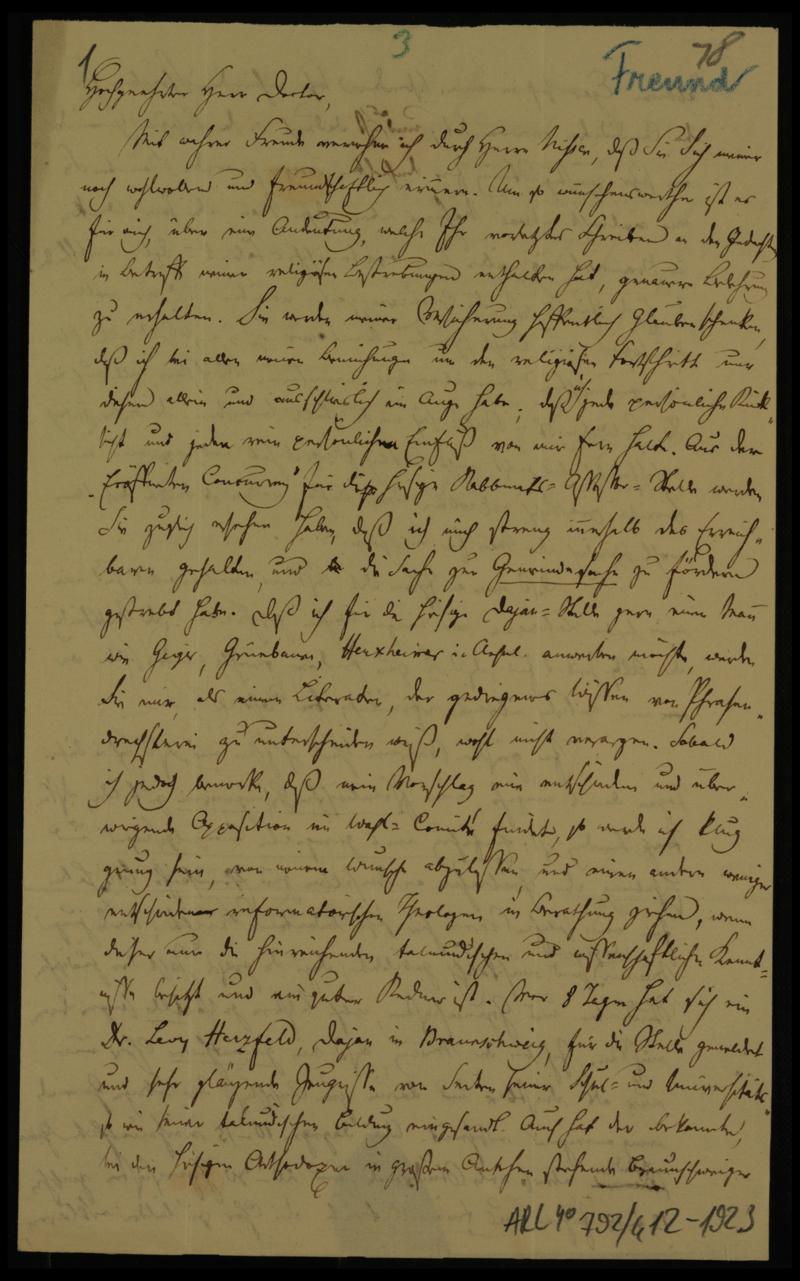 3
78
Freund
1
Hochgeehrter Herr Doctor,
Mit wahrer Freude vernehme ich durch Herrn, daß Sie Sich meiner
noch wohlwollend und freundschaftlich erinnern. Um so wünschenswerther ist es
für mich, über eine Andeutung, welche Ihr vorletztes Schreiben an den Gedachten
in Betreff meiner religiösen Bestrebungen enthalten hat, genauere Belehrung
zu erhalten. Sie werden meiner Versicherung hoffentlich Glauben schenken,
daß ich bei allen meinen Bemühungen um den religiösen Fortschritt nur
diesen allein und ausschließlich im Auge habe, daß ich jede persönliche Rück-
sicht und jeden rein persönlichen Einfluß von mir fern halte. Aus der
„Eröffneten Concurrenz" für die hiesige Rabbinats-Assessor-Stelle werden
Sie zugleich ersehen haben, daß ich mich streng innerhalb des Erreich-
baren gehalten, und die Sache zur Gemeindesache zu fördern
gestrebt habe. Daß ich für die hiesige Dajan-Stelle gern einen Mann
wie Geiger, Grünbaum, Herxheimer anwerben möchte, werden
Sie mir, als einem Literaten, der gediegenes Wissen von Phrasen-
drechslerei zu unterscheiden weiß, wohl nicht verargen. Sobald
ich jedoch bemerke, daß mein Vorschlag eine entschiedene und über-
wiegende Opposition im Wahl-Comité findet, so werde ich klug
genug sein, von meinem Wunsche abzulassen, und einen andern weniger
entschiedenen reformatorischen Theologen in Berathung ziehen, wenn
dieser nur die hinreichenden talmudischen und wissenschaftlichen Kennt-
nisse besitzt und ein guter Redner ist. Vor 8 Tagen hat sich ein
Dr. Levy Herzfeld, Dajan in Braunschweig, für die Stelle gemeldet
und sehr glänzende Zeugnisse von Seiten seiner Schul- und Universitäts-
so wie seiner talmudischen Bildung eingesandt. Auch hat der bekannte,
bei den hiesigen Orthodoxen in großem Ansehen stehende Braunschweiger
ARC 4° 792/G12-1923